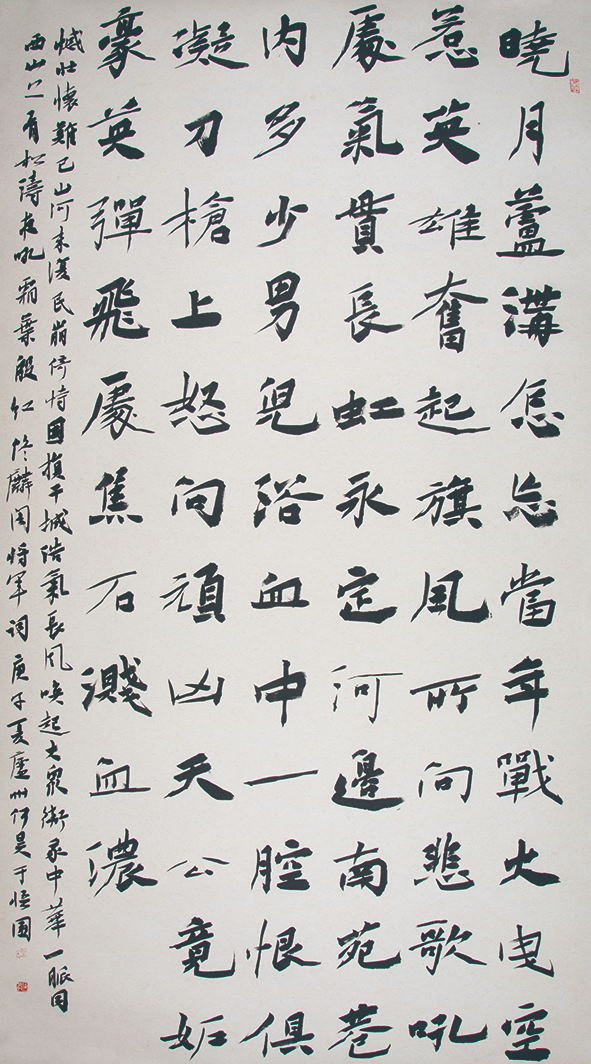 曉月蘆溝怎忘當年戰火曳空
惹英雄奮起旗風所向悲歌吼
處氣貫長虹永定河邊南苑巷
内多少男兒浴血中一腔恨俱
凝刀槍上怒问頑凶天公竟妬
豪英彈飛處焦石濺血濃
憾壯懷難已山河未復民崩倚恃國損干城浩氣長风喚起大衆衛中華一脈同
西山上有松濤夜吼霜葉殷红佟麟閣将军词庚子夏廬州何昊于悟園